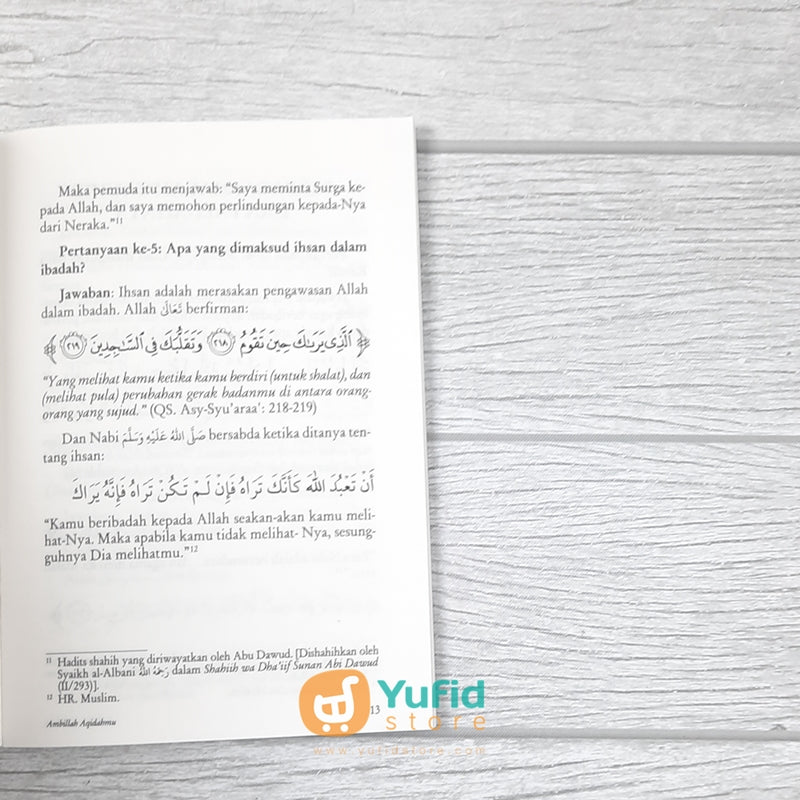 Maka pemuda itu menjawab: “Saya meminta Surga ke-
pada Allah, dan saya memohon perlindungan kepada-Nya
dari Neraka.”11
Pertanyaan ke-5: Apa yang dimaksud ihsan dalam
ibadah?
Jawaban: Ihsan adalah merasakan pengawasan Allah
dalam ibadah. Allah تَعَالَى berfirman:
﴿ ٱلَّذِي يَرَىٰكَ حِينَ تَقُومُ ٢١٨ وَتَقَلُّبَكَ فِي ٱلسَّٰجِدِينَ ٢١٩ ﴾
“Yang melihat kamu ketika kamu berdiri (untuk shalat), dan
(melihat pula) perubahan gerak badanmu di antara orang-
orang yang sujud.” (QS. Asy-Syu’araa’: 218-219)
Dan Nabi صَلَّى اللهُ عَلَيْهِ وَسَلَّمَ bersabda ketika ditanya ten-
tang ihsan:
أَنْ تَعْبُدَ اللهَ كَأَنَّكَ تَرَاهُ فَإِنْ لَمْ تَكُنْ تَرَاهُ فَإِنَّهُ يَرَاكَ
“Kamu beribadah kepada Allah seakan-akan kamu meli-
hat-Nya. Maka apabila kamu tidak melihat- Nya, sesung-
guhnya Dia melihatmu.”12
11 Hadits shahih yang diriwayatkan oleh Abu Dawud. [Dishahihkan oleh
Syaikh al-Albani رَحِمَهُ اللهُ dalam Shahiih wa Dha’iif Sunan Abi Dawud
(II/293)].
12 HR. Muslim.
13
Ambillah Aqidahmu
Yufid
store
www.yufidstore.com